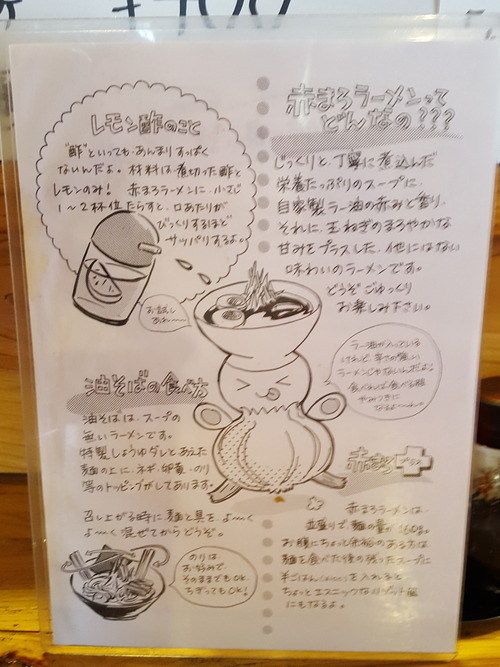 ¥700
赤まろラーメンって
どんなの???
じっくりと、丁寧に煮込んだ
栄養たっぷりのスープに、
自家製ラー油の赤みと香り、
それに、玉ねぎのまろやかな
甘みをプラスした、他にはない
味わいのラーメンです。
どうぞごゆっくり
お楽しみ下さい。
ラー油が入っている
けれど、辛さが強い
ラーメンじゃないんだよ!
食べれば食べる程
やみつきに
なるよ〜
赤まろプラス
赤まろラーメンは、
並盛りで、麺の量が160g。
お腹にちょっと余裕のある方は、
麺を食べた後の残ったスープに
半ごはん を入れると
ちょっとエスニックなリゾット風
にもなるよ。
レモン酢のこと
"酢"といっても、あんまりすっぱく
ないんだよ。材料は煮切った酢と
レモンのみ! 赤まろラーメンに、小さじ
1〜2杯位たらすと、口あたりが
びっくりするほど
サッパリするよ。
お試し
あれ〜
油そばの食べ方
油そばは、スープの
無いラーメンです。
特製しょうゆダレとあえた
麺の上に、ネギ、卵黄、のり
等のトッピングがしてあります。
召し上がる時に麺と具を、よ〜く
よ〜く混ぜてからどうぞ。
のりは、
お好みで、
そのままでもOK、
ちぎってもOK!